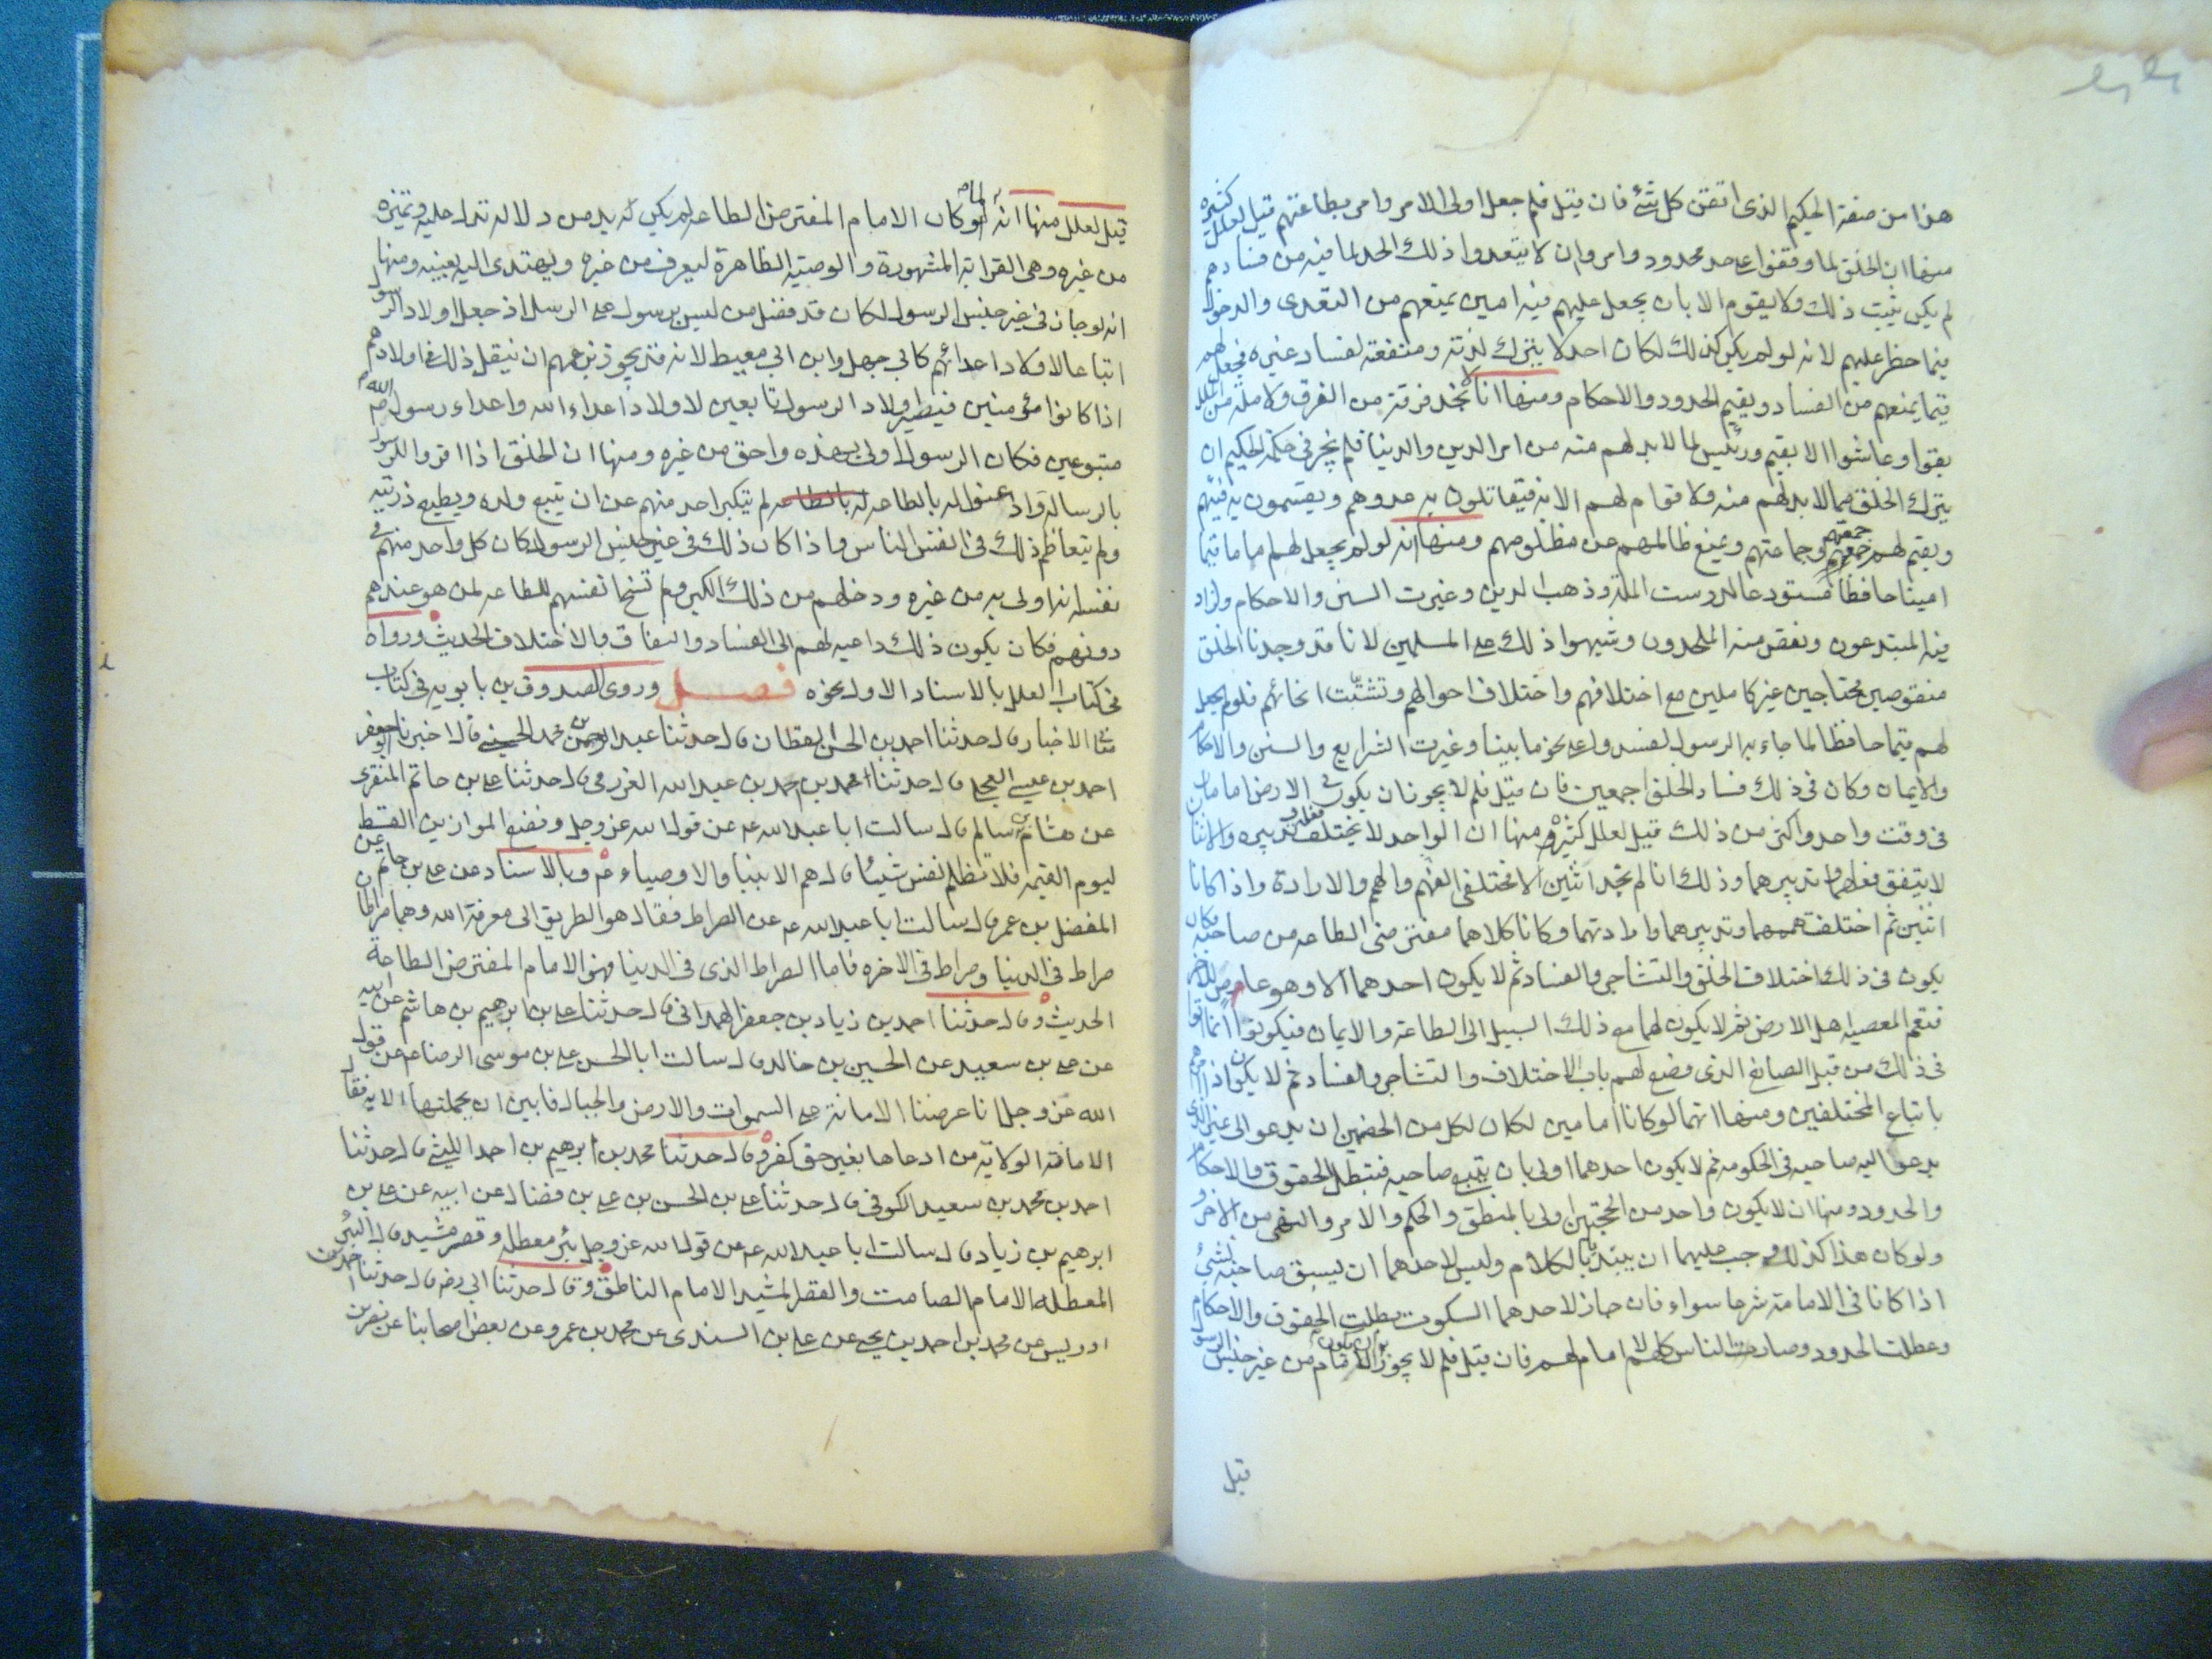 هذا من صفة الحكيم الذى اتقن كل شئ فان قيل فلم جعل اولى الامر وامر بطاعتهم قيل لعلل كثيرة
منها ان الخلق لما وقفوا على حد محدود وامروا ان لا يتعدوا ذلك الحد لما فيه من فسادهم
لم يكن يثبت ذلك ولا يقوم الا بان يجعل عليهم فيه امين يمنعهم من التعدى والدخول
فيما حظر عليهم لانه لو لم يكن كذلك لكان احد لا يترك لذته ومنفعته لفساد غيره فجعل لهم
قيما يمنعهم من الفساد ويقيم الحدود والاحكام ومنها انا لا نجد فرقة من الفرق ولا ملة من الملل
بقوا وعاشوا الا بقيم ورئيس لما لابد لهم منه من امر الدين والدنيا فلم يجز فى حكمة الحكيم ان
يترك الخلق مما لابد لهم منه ولا قوام لهم الا به فيقاتلون به عدوهم ويقسمون به فيئهم
ويقيم لهم جمعتهم وجماعتهم ويمنع ظالمهم من مظلومهم ومنها انه لو لم يجعل لهم اماما قيما
امينا حافظا مستودعا لدرست الملة وذهب الدين وغيرت السنن والاحكام ولزاد
فيه المبتدعون ونقص منه الملحدون وشبهوا ذلك على المسلمين لانا قد وجدنا الخلق
منقوصين محتاجين غير كاملين مع اختلافهم واختلاف احوالهم وتشتت انحائهم فلو لم يجعل
لهم قيما حافظا لما جاء به الرسول لفسدوا على نحو ما بينا وغيرت الشرايع والسنن والاحكام
والايمان وكان فى ذلك فساد الخلق اجمعين فان قيل فلم لا يجوز ان يكون فى الارض امامان
فى وقت واحد واكثر من ذلك قيل لعلل كثيرة منها ان الواحد لا يختلف فعله وتدبيره والاثنان
لا يتفق فعلهما وتدبيرهما وذلك انا لم نجد اثنين الا مختلفى الفهم والهمم والارادة واذا كانا
اثنين ثم اختلفت هممهما وتدبيرهما وارادتهما وكانا كلاهما مفترضى الطاعه من صاحبه فكان
يكون فى ذلك اختلاف الخلق والتشاجر والفساد ثم لا يكون احدهما الا وهو عاص للاخر
فتعم المعصيه اهل الارض ثم لا يكون لهما مع ذلك السبيل الى الطاعة والايمان فيكونوا انما اتوا
فى ذلك من قبل الصانع الذى وضع لهم باب الاختلاف والتشاجر والفساد ثم لا يكون اذ امرهم
باتباع المختلفين ومنها انهما لو كانا امامين لكان لكل من الخصمين ان يدعو الى غير الذى
يدعو اليه صاحبه فى الحكومه ثم لا يكون احدهما اولى بان يتبع صاحبه فتبطل الحقوق والاحكام
والحدود ومنها ان لا يكون واحد من الحجتين اولى بالمنطق والحكم والامر والنهى من الاخر
ولو كان هذا كذلك وجب عليهما ان يبتدئا بالكلام وليس لاحدهما ان يسبق صاحبه بشئ
اذا كانا فى الامامة شرعا سواء فان جاز لاحدهما السكوت بطلت الحقوق والاحكام
وعطلت الحدود وصارت الناس كلهم لا امام لهم فان قيل فلم لا يجوز ان يكون الامام من غير جنس الرسول
قيل
قيل لعلل منها انه لما كان الامام المفترض الطاعه لم يكن له بد من دلاله تدل عليه ويتميز به
من غيره وهى القرابة المشهورة والوصية الظاهرة ليعرف من غيره ويهتدى اليه بعينه ومنها
انه لو جاز فى غير جنس الرسول لكان قد فضل من ليس برسول على الرسل اذ جعل اولاد الرسول
اتباعا لاولاد اعدائهم كابى جهل وابن ابى معيط لانه قد يجوز بزعمهم ان ينقل ذلك فى اولادهم
اذا كانوا مؤمنين فيصير اولاد الرسول تابعين لاولاد اعداء الله واعداء رسول الله ص
متبوعين فكان الرسول اولى بهذه واحق من غيره ومنها ان الخلق اذا اقروا للرسول
بالرسالة واذعنوا له بالطاعه لم يتكبر احد منهم عن ان يتبع ولده ويطيع ذريته
ولم يتعاظم ذلك فى انفس الناس واذا كان ذلك فى غير جنس الرسول كان كل واحد منهم فى
نفسه انه اولى به من غيره ودخلهم من ذلك الكبر ولم تسخ انفسهم للطاعه لمن هو عندهم
دونهم فكان يكون ذلك داعيه لهم الى الفساد والنفاق والاختلاف الحديث ورواه
فى كتاب العلل بالاسناد الاول نحوه فصل وروى الصدوق بن بابويه فى كتاب
معانى الاخبار قال حدثنا احمد بن الحسن القطان قال حدثنا عبد الرحمن بن محمد الحسينى قال اخبرنا ابو جعفر
احمد بن عيسى العجلى قال حدثنا محمد بن احمد بن عبد الله العزرمى قال حدثنا على بن حاتم المنقرى
عن هشام بن سالم قال سالت ابا عبد الله ع عن قول الله عز وجل ونضع الموازين القسط
ليوم القيمه فلا تظلم نفس شيئا قال هم الانبيا والاوصياء ع وبالاسناد عن على بن حاتم عن
المفضل بن عمر قال سالت ابا عبد الله ع عن الصراط فقال هو الطريق الى معرفة الله وهما صراطان
صراط فى الدنيا وصراط فى الاخره فاما الصراط الذى فى الدنيا فهو الامام المفترض الطاعة
الحديث وقال حدثنا احمد بن زياد بن جعفر الهمدانى قال حدثنا على بن ابرهيم بن هاشم عن ابيه
عن على بن سعيد عن الحسين بن خالد قال سالت ابا الحسن على بن موسى الرضا ع عن قول
الله عز وجل انا عرضنا الامانة على السموات والارض والجبال فابين ان يحملنها الايه فقال
الامانة الولاية من ادعاها بغير حق كفر وقال حدثنا محمد بن ابرهيم بن احمد الليثى قال حدثنا
احمد بن محمد بن سعيد الكوفى قال حدثنا على بن الحسن بن على بن فضال عن ابيه عن على بن
ابرهيم بن زياد قال سالت ابا عبد الله ع عن قول الله عز وجل بئر معطلة وقصر مشيد قال البئر
المعطله الامام الصامت والقصر المشيد الامام الناطق وقال حدثنا ابى رض قال حدثنا احمد بن
ادريس عن محمد بن احمد بن يحيى عن على بن السندى عن محمد بن عمرو عن بعض اصحابنا عن نصر بن